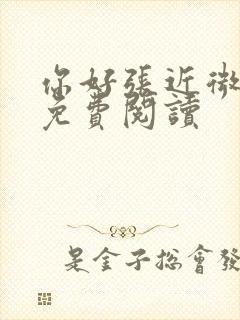 你好張近微
免費閱讀
是金子總會發